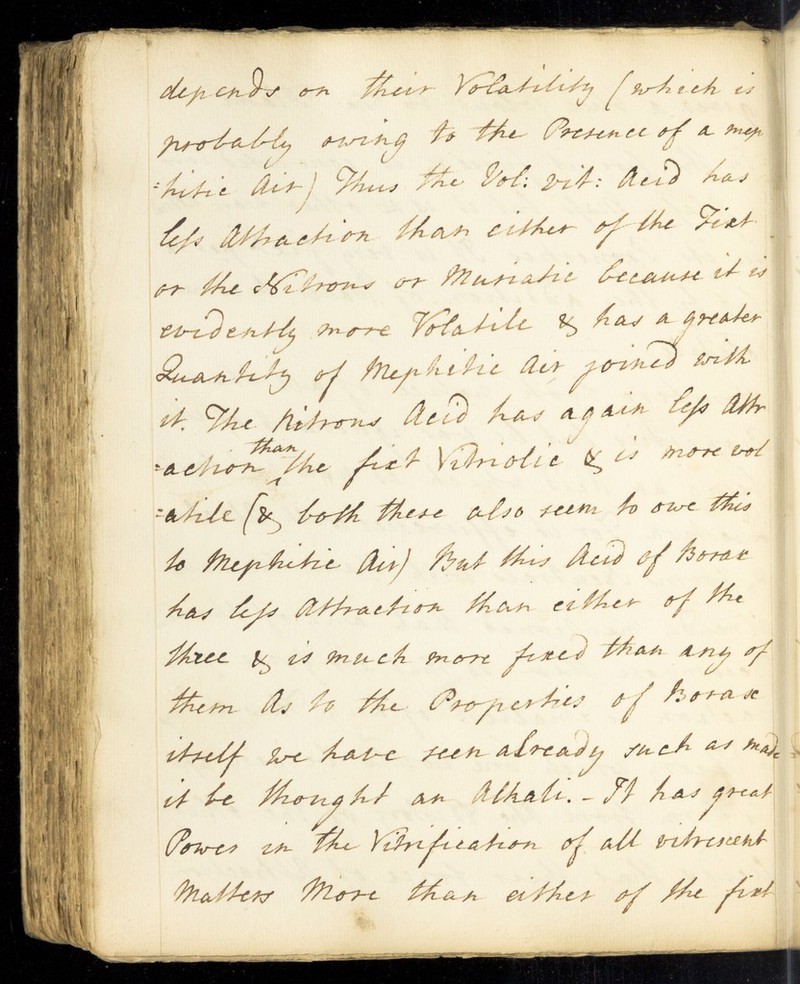 depends on their Volatility (which is
probably owing to the Presence of a mep
=hitic Air) Thus the Vol: vit: Acid has
less Attraction than either of the Fixt
or the Nitrous or Muriatic because it is
evidently more Volatile & has a greater
Quantity of Mephitic Air joined with
it. The Nitrous Acid has again less Attr
=action than the fixt Vitriolic & is more vol
=atile (& both these also seem to owe this
to Mephitic Air) But this Acid of Borax
has less Attraction than either of the
three & is much more fixed than any of
them As to the Properties of Borax
itself we have seen already such as made
it be thought an Alkali. - It has great
Power in the Vitrification of all vitrescent
Matters More than either of the fixt